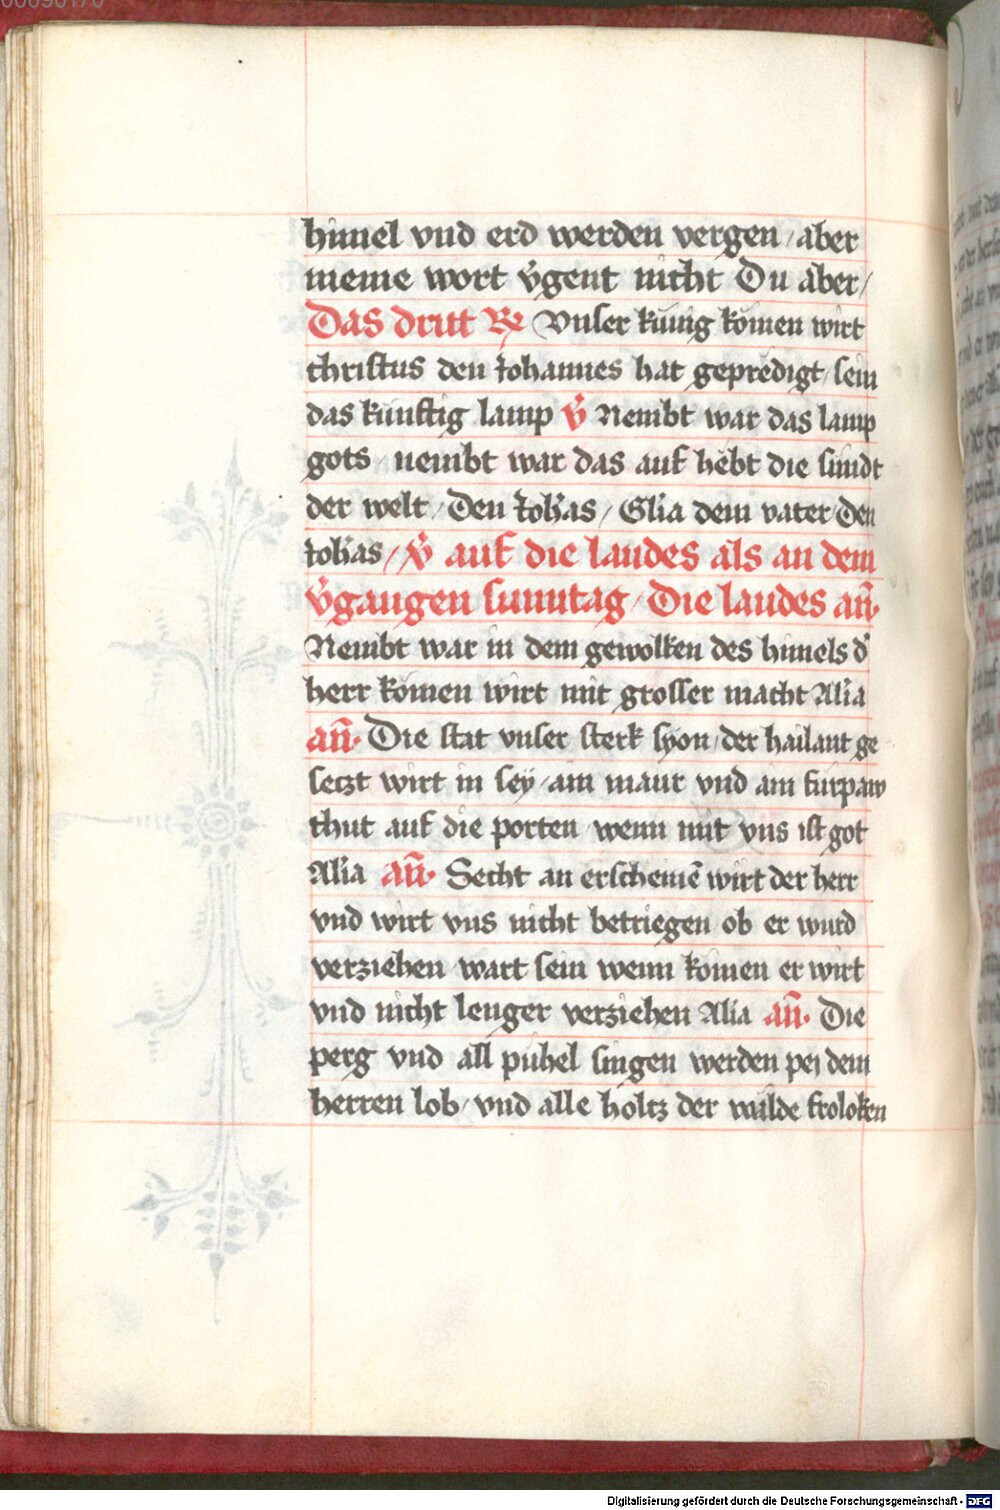 himel vnd erd werden vergen / aber
meine wort v̄gent nicht Du aber /
Das dritt R Vnser kunig komen wirt
christus den Johannes hat gepredigt / sein
das kunftig lamp v̄ Nembt war das lamp
gots / nembt war das auf hebt die sundt
der welt / Den Joh̄as / Glia dem vater / Den
Joh̄as / v̄ auf die laudes als an dem
v̄gangen sunntag / Die laudes an̄.
Nembt war in dem gewolken des himels d̓
herr komen wirt mit grosser macht Alia
an̄. Die stat vnser sterk syon / der hailant ge
seczt wirt in sey / ain maur vnd ain furpaw
thut auf die porten / wenn mit vns ist got
Alia an̄. Secht an erscheinē wirt der herr
vnd wirt vns nicht betriegen ob er wurd
verziehen wart sein wenn komen er wirt
vnd nicht lenger verziehen Alia an̄. Die
perg vnd all puhel singen werden pej dem
herren lob / vnd alle holtz der wilde froloken
Digitalisierung gefördert durch die Deutsche Forschungsgemeinschaft - DFG